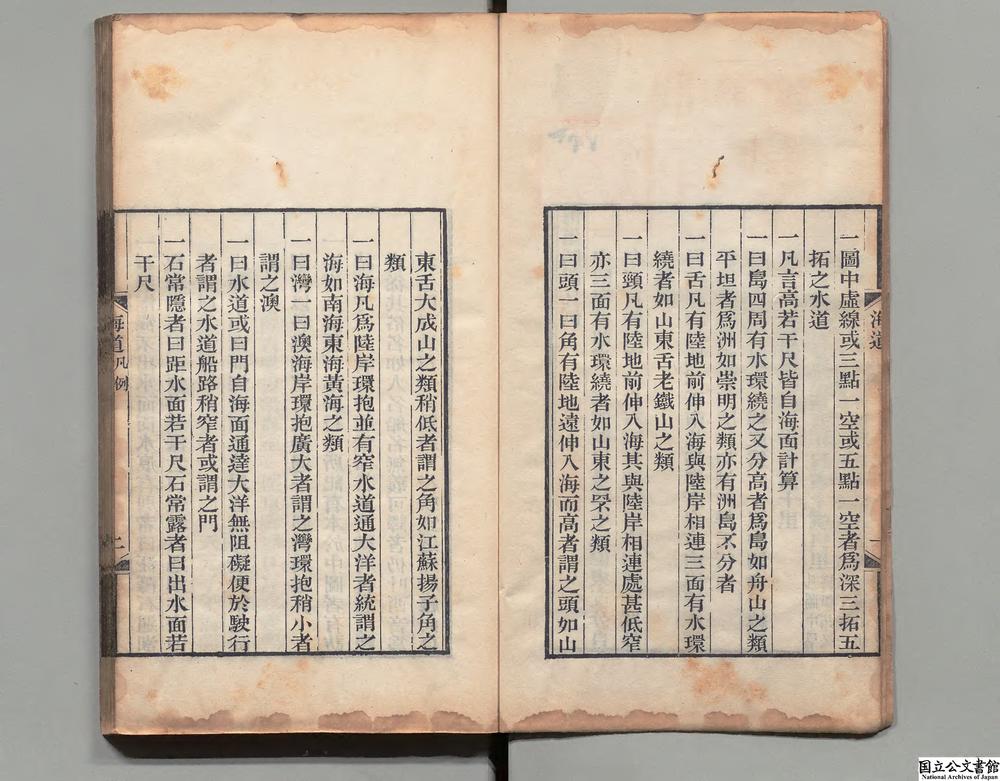 一圖中虛線或三點一空或五點一空者爲深三拓五
拓之水道
一凡言高若干尺皆自海面計算
一曰島四周有水環繞之又分高者爲島如舟山之類
平坦者爲洲如崇明之類亦有洲島不分者
一曰舌凡有陸地前伸入海與陸岸相連三面有水環
繞者如山東舌老鐵山之類
一曰頸凡有陸地前伸入海其與陸岸相連處甚低窄
亦三面有水環繞者如山東之罘之類
一曰頭一曰角有陸地遠伸入海而高者謂之頭如山
海道
一
東舌大成山之類稍低者謂之角如江蘇揚子角之
類
一曰海凡爲陸岸環抱並有窄水道通大洋者統謂之
海如南海東海黃海之類
一曰灣一曰澳海岸環抱廣大者謂之灣環抱稍小者
謂之澳
一曰水道或曰門自海面通達大洋無阻礙便於駛行
者謂之水道船路稍窄者或謂之門
一石常隱者曰距水面若干尺石常露者曰出水面若
干尺
海道凡例
二
国立公文書館
National Archives of Japan